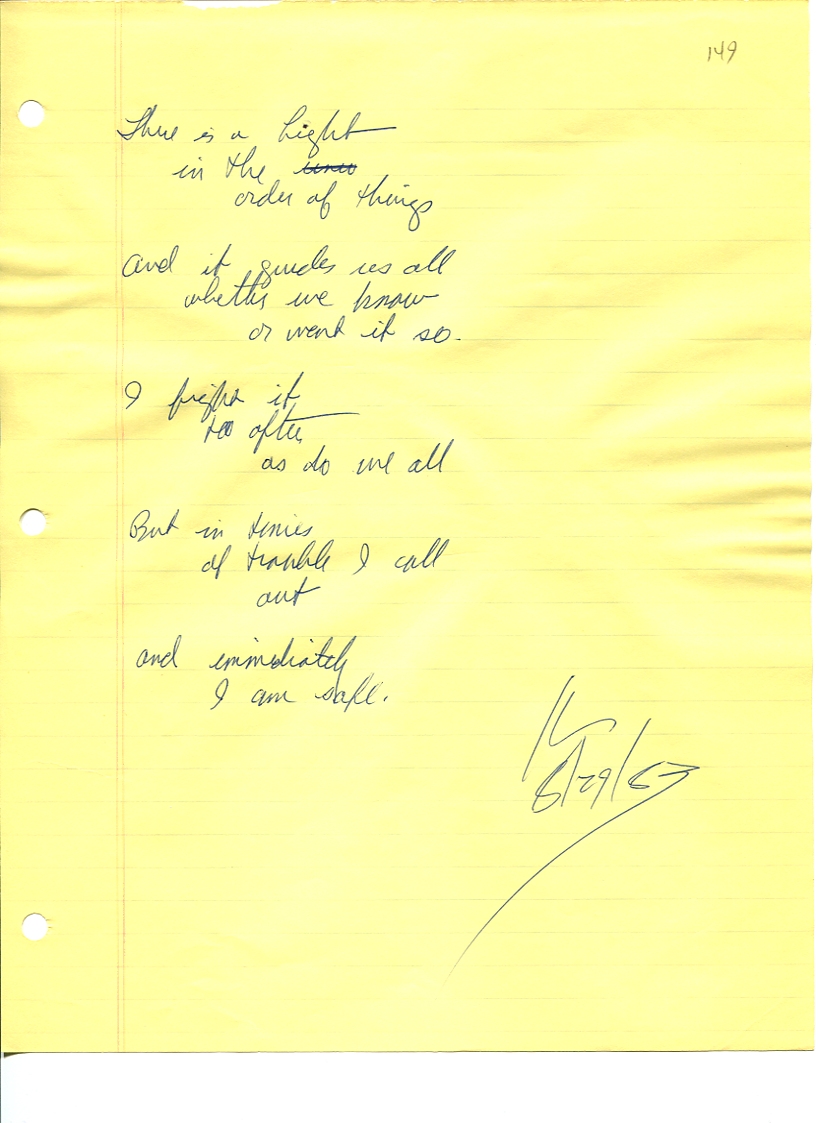 149
There is a Light
in the
order of things
And it guides us all
whether we know
or want it so.
I fight it
too often
as do we all
But in times
of trouble I call
out
and immediately
I am safe.